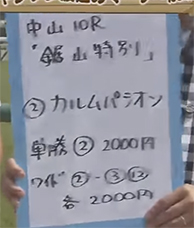 中山10R
「鋸山特別」
② カルムパシオン
単勝 ② 2000円
ワイド ②-③⑬
各 2000円